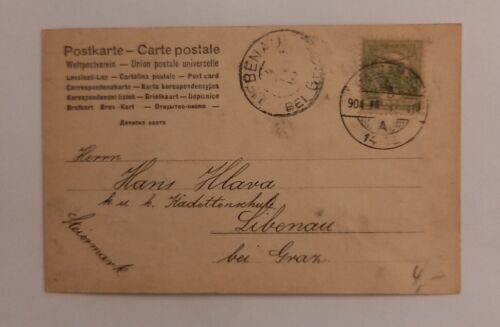 Postkarte – Carte postale
Weltpostverein – Union postale universelle
Levelező-Lap – Cartolina postale – Post card
Correspondenzkarte – Karta korespondencyjna
Korespondenční lístek – Briefkaart – Dopisnice
Brefkort Brev-Kort – Открытое письмо
Дописна карта
LIEBENAU
BEI
904
A
Herrn
Hans Hlava
k u. k. Kadettenschule
Libenau
bei Graz.
Steiermark
4,-